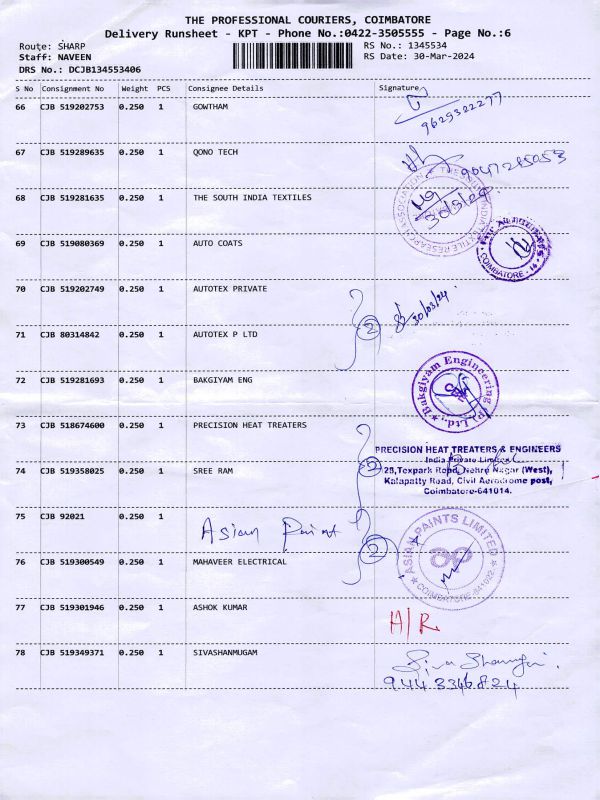 THE PROFESSIONAL COURIERS, COIMBATORE
Delivery Runsheet - KPT - Phone No.:0422-3505555 - Page No.:6
Route: SHARP RS No.: 1345534
Staff: NAVEEN RS Date: 30-Mar-2024
DRS No.: DCJB134553406
S No Consignment No Weight PCS Consignee Details Signature
66 CJB 519202753 0.250 1 GOWTHAM
9629322277
67 CJB 519289635 0.250 1 QONO TECH
9047285053
68 CJB 519281635 0.250 1 THE SOUTH INDIA TEXTILES
30/3/24
69 CJB 519080369 0.250 1 AUTO COATS
COIMBATORE - 14
70 CJB 519202749 0.250 1 AUTOTEX PRIVATE
2 30/03/24
71 CJB 80314842 0.250 1 AUTOTEX P LTD
72 CJB 519281693 0.250 1 BAKGIYAM ENG
Bakgiyam Engineering (P) Ltd.,
73 CJB 518674600 0.250 1 PRECISION HEAT TREATERS
PRECISION HEAT TREATERS & ENGINEERS
India Private Limited
74 CJB 519358025 0.250 1 SREE RAM 2
28,Texpark Road, Nehru Nagar (West),
Kalapatty Road, Civil Aerodrome post,
Coimbatore-641014.
75 CJB 92021 0.250 1 Asian Paint
2
ASIAN PAINTS LIMITED
COIMBATORE-641022
76 CJB 519300549 0.250 1 MAHAVEER ELECTRICAL
77 CJB 519301946 0.250 1 ASHOK KUMAR H/R
78 CJB 519349371 0.250 1 SIVASHANMUGAM
9443346824